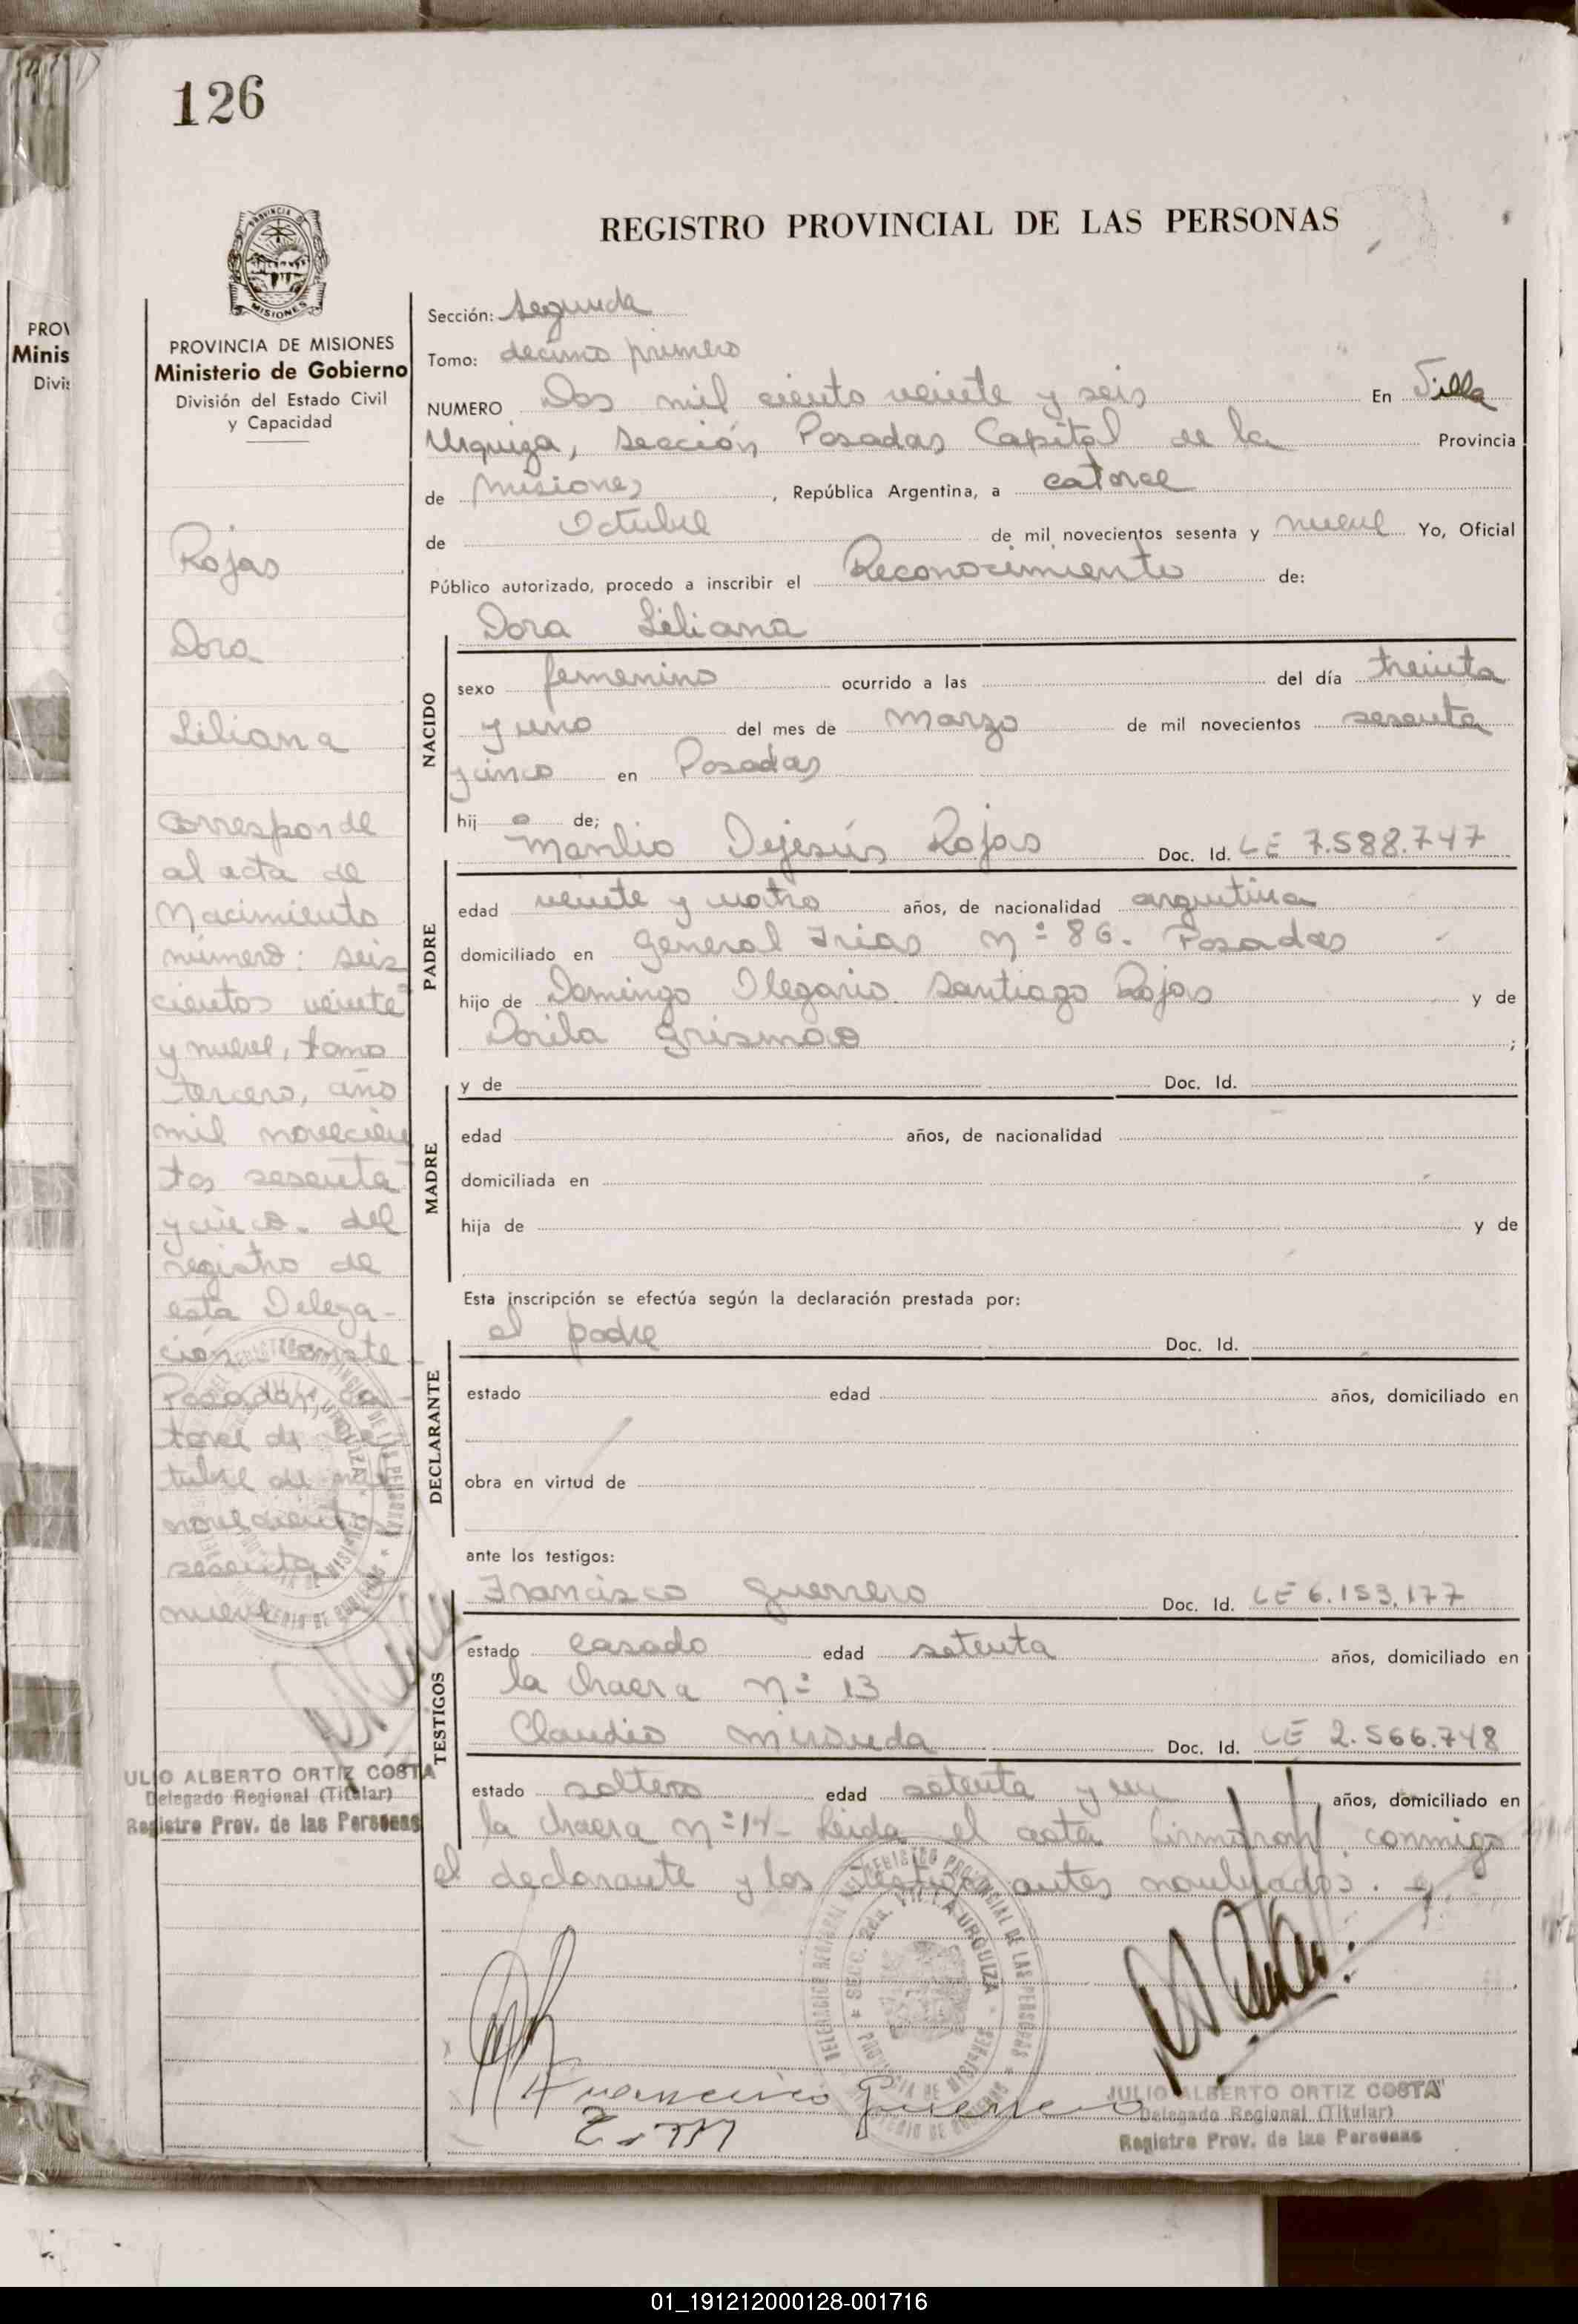 126
REGISTRO PROVINCIAL DE LAS PERSONAS
PROVINCIA DE MISIONES
Ministerio de Gobierno
División del Estado Civil
y Capacidad
Rojas
Dora
Liliana
Corresponde
al acta de
Nacimiento
número: seis
cientos veinte
y nueve, tomo
tercero, año
mil novecien
tos sesenta
y cinco. del
registro de
esta Delega-
ción
Posadas, ca-
torce de oc
tubre de mil
novecientos
sesenta
nueve
ULIO ALBERTO ORTIZ COSTA
Delegado Regional (Titular)
Registro Prov. de las Personas
Sección: segunda
Tomo: decimo primero
NUMERO Dos mil ciento veinte y seis En Villa
Urquiza, sección Posadas Capital de la Provincia
de Misiones, República Argentina, a catorce
de Octubre de mil novecientos sesenta y nueve Yo, Oficial
Público autorizado, procedo a inscribir el Reconocimiento de:
Dora Liliana
NACIDO
sexo femenino ocurrido a las del día treinta
y uno del mes de Marzo de mil novecientos sesenta
y cinco en Posadas
hij a de;
Manlio Dejesús Rojas Doc. Id. LE 7.588.747
PADRE
edad veinte y cuatro años, de nacionalidad argentina
domiciliado en General Frias Nº 86. Posadas
hijo de Domingo Olegario Santiago Rojas y de
Dorila ;
MADRE
y de Doc. Id.
edad años, de nacionalidad
domiciliada en
hija de y de
Esta inscripción se efectúa según la declaración prestada por:
el padre Doc. Id.
DECLARANTE
estado edad años, domiciliado en
obra en virtud de
ante los testigos:
Francisco Guerrero Doc. Id. LE 6.153.177
TESTIGOS
estado casado edad setenta años, domiciliado en
la chacra Nº 13
Claudio Miranda Doc. Id. LE 2.566.748
estado soltero edad setenta y un años, domiciliado en
la chacra Nº 14- Leida el acta firmaron conmigo
el declarante y los testigos antes nombrados.
DELEGACION REGIONAL DEL REGISTRO PROVINCIAL DE LAS PERSONAS
SECC. 2da. VILLA URQUIZA
Francisco Guerrero
JULIO ALBERTO ORTIZ COSTA
Delegado Regional (Titular)
Registro Prov. de las Personas
PROV
Minis
Divis
01_191212000128-001716